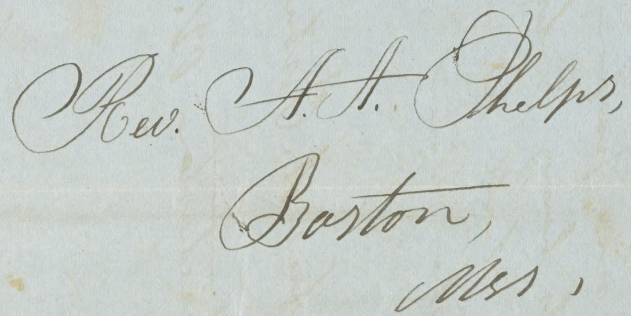 Rev. A. A. Phelps,
Boston,
Mss,